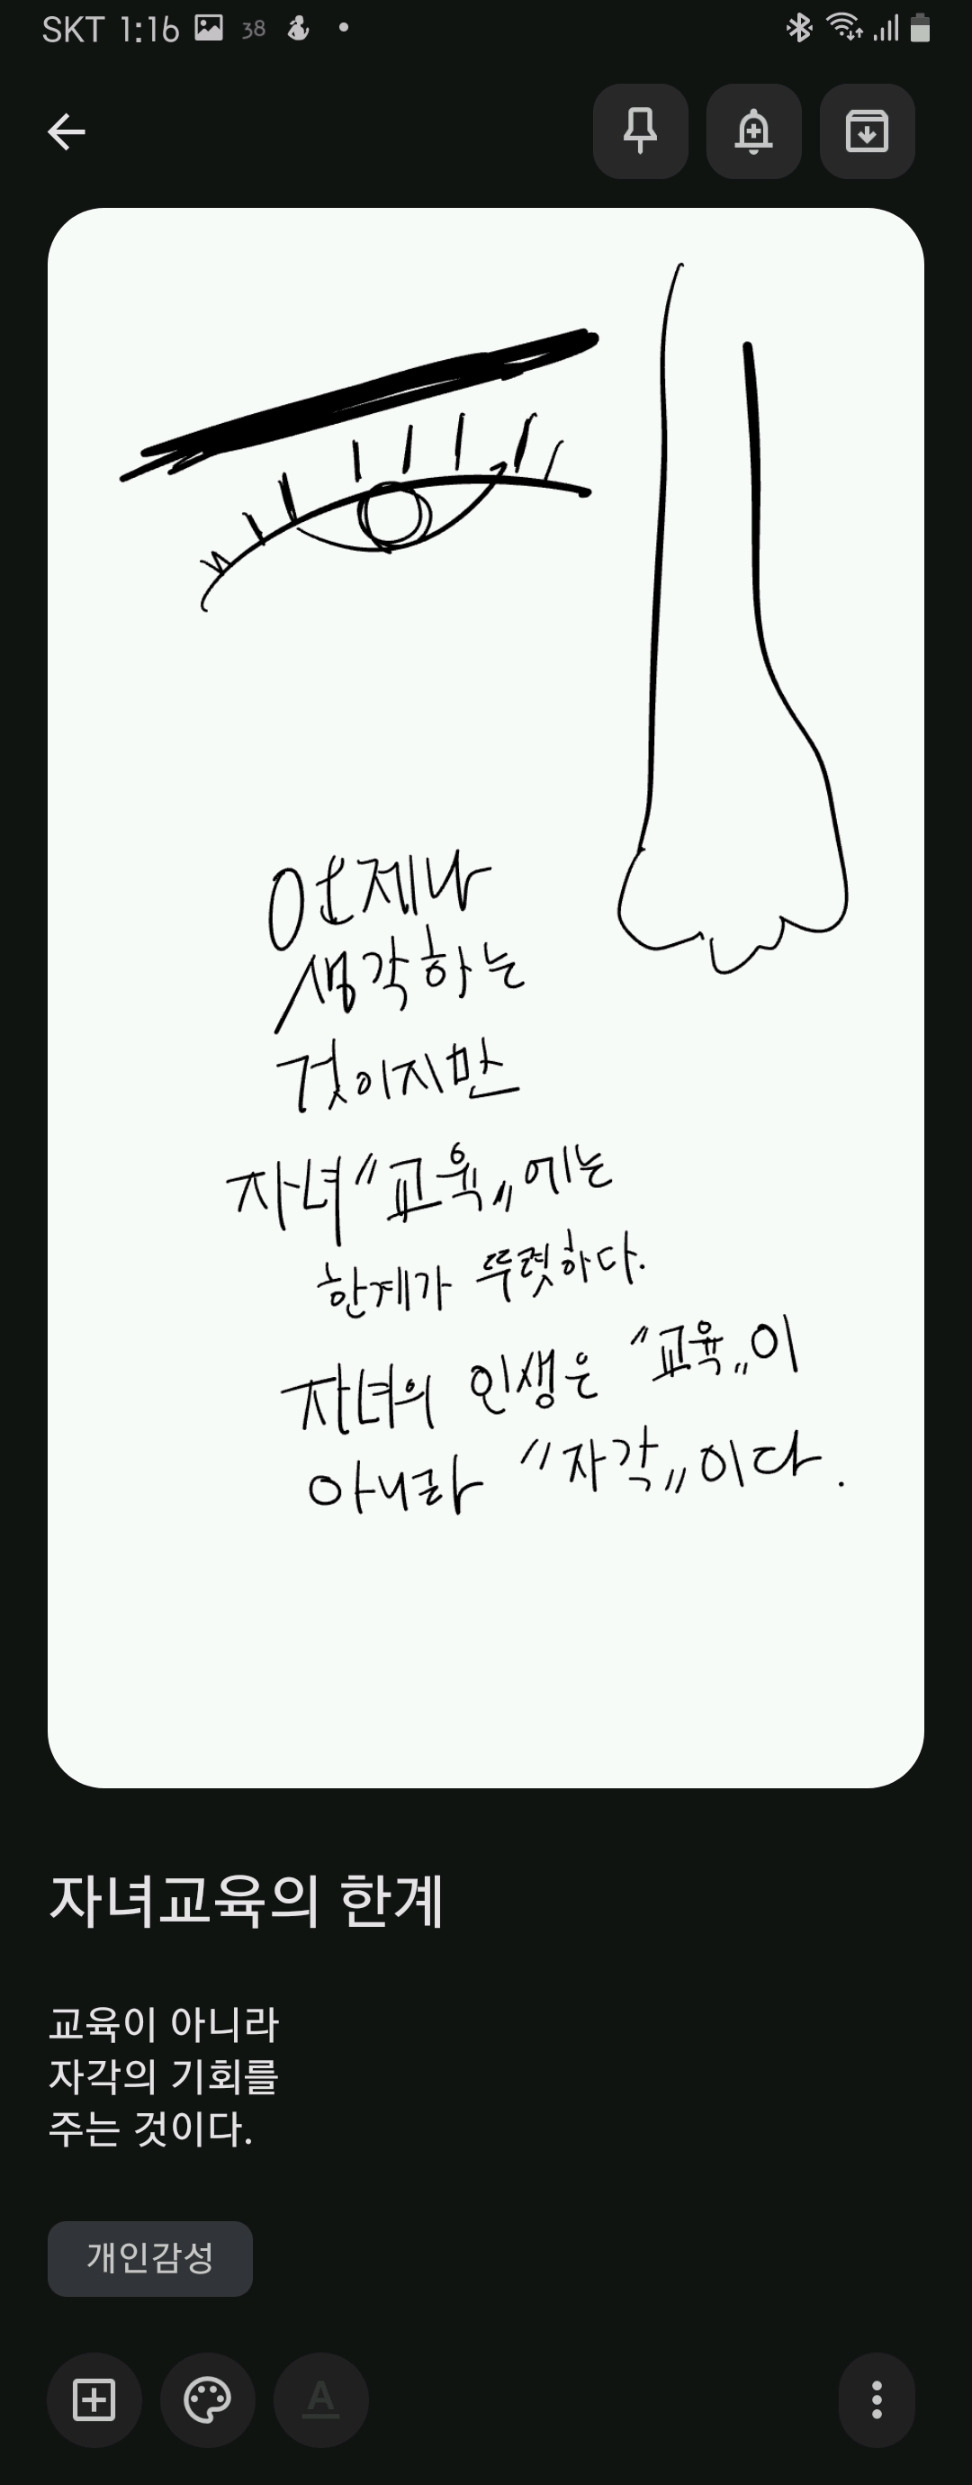 SKT 1:16 38
언제나
생각하는
것이지만
자녀"교육"에는
한계가 뚜렷하다.
자녀의 인생은 "교육"이
아니라 "자각"이다.
자녀교육의 한계
교육이 아니라
자각의 기회를
주는 것이다.
개인감성
A